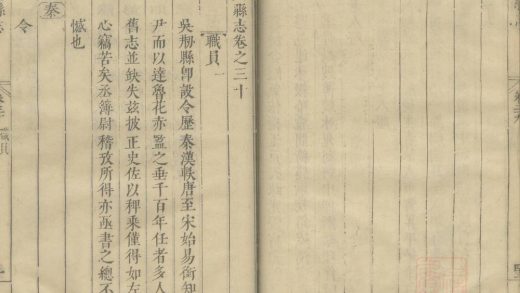 縣志卷之三十
職員一
吳剏縣卽設令歷秦漢軼唐至宋始易銜知
尹而以達魯花赤監之垂千百年任者多人
舊志並缺失茲披正史佐以稗乘僅得如左
心竊苦矣丞簿尉稽攷所得亦亟書之總不
憾也
秦
令